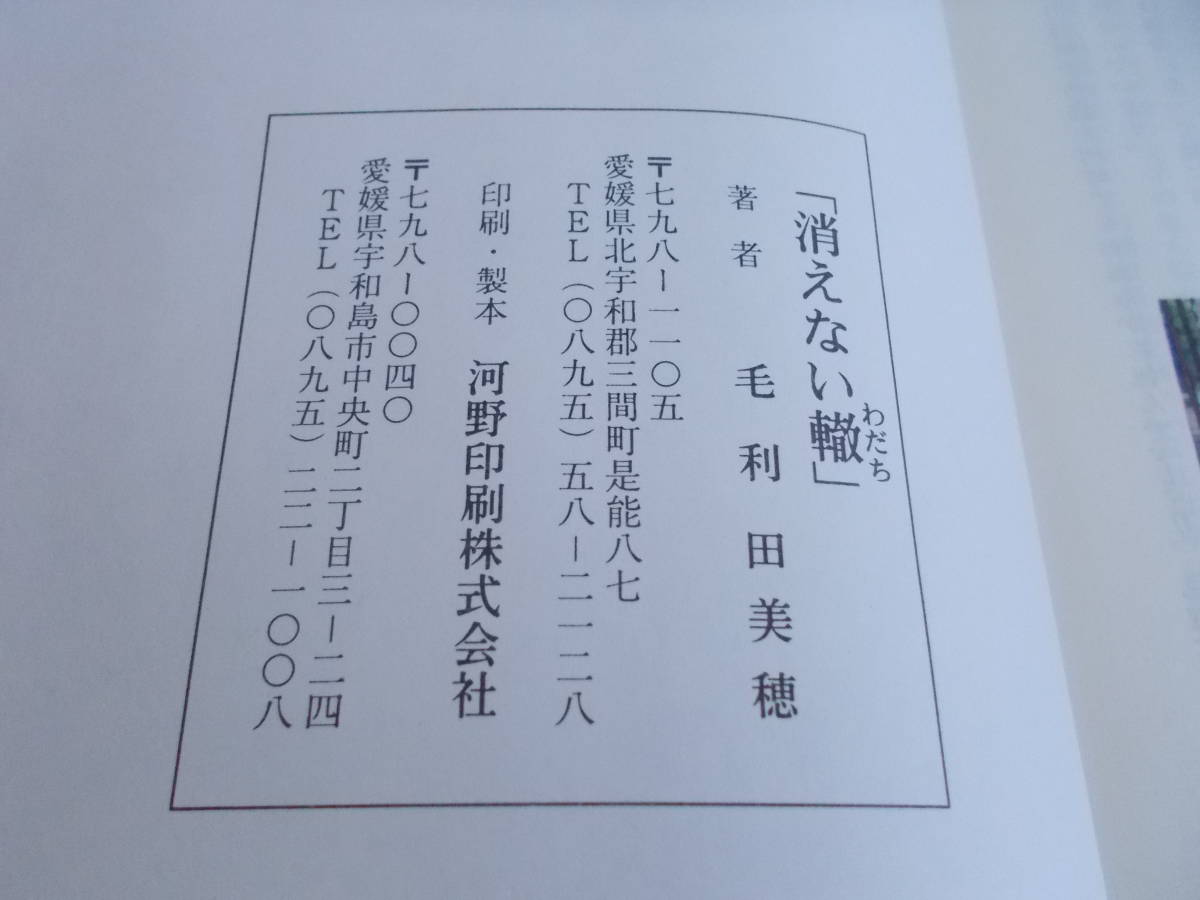 「消えない轍」
わだち
著者 毛利田美穂
〒七九八ー一一〇五
愛媛県北宇和郡三間町是能八七
TEL(〇八九五)五八ー二一二八
印刷・製本 河野印刷株式会社
〒七九八ー〇〇四〇
愛媛県宇和島市中央町二丁目三ー二四
TEL(〇八九五)二二ー一〇〇八